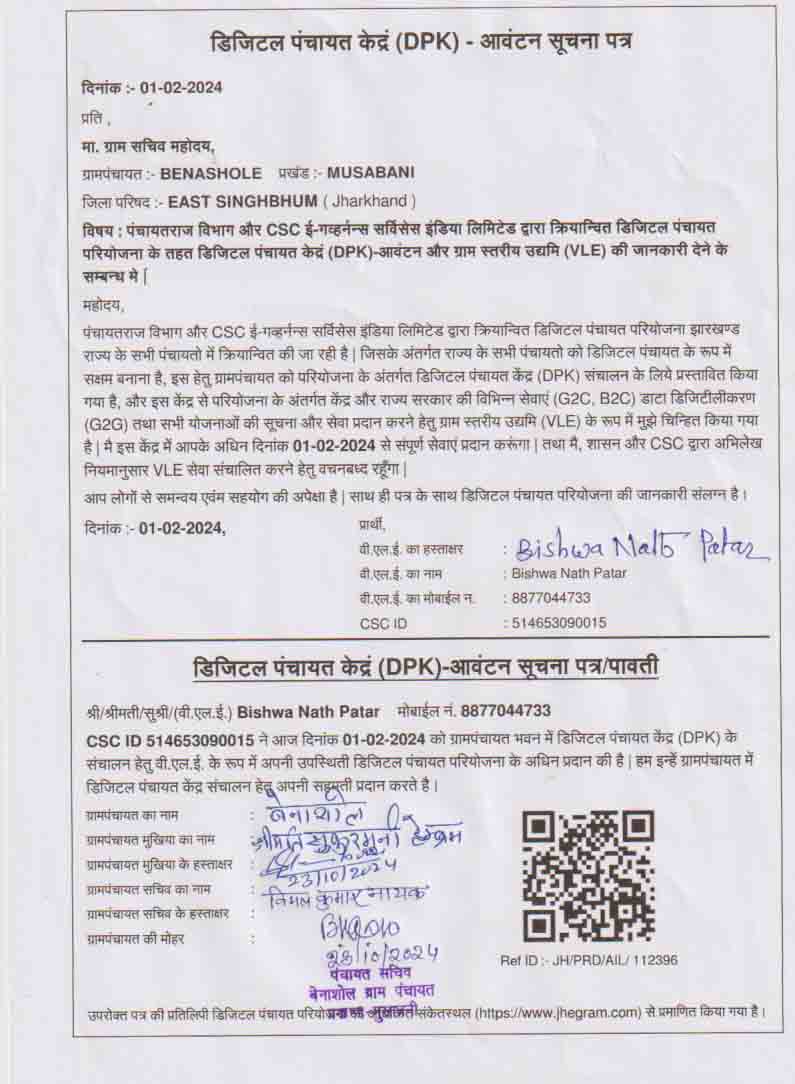 डिजिटल पंचायत केद्रं (DPK) - आवंटन सूचना पत्र
दिनांक :- 01-02-2024
प्रति ,
मा. ग्राम सचिव महोदय,
ग्रामपंचायत :- BENASHOLE प्रखंड :- MUSABANI
जिला परिषद :- EAST SINGHBHUM ( Jharkhand )
विषय : पंचायतराज विभाग और CSC ई-गव्हर्नन्स सर्विसेस इंडिया लिमिटेड द्वारा क्रियान्वित डिजिटल पंचायत
परियोजना के तहत डिजिटल पंचायत केद्रं (DPK)-आवंटन और ग्राम स्तरीय उद्यमि (VLE) की जानकारी देने के
सम्बन्ध मे |
महोदय,
पंचायतराज विभाग और CSC ई-गव्हर्नन्स सर्विसेस इंडिया लिमिटेड द्वारा क्रियान्वित डिजिटल पंचायत परियोजना झारखण्ड
राज्य के सभी पंचायतो में क्रियान्वित की जा रही है | जिसके अंतर्गत राज्य के सभी पंचायतो को डिजिटल पंचायत के रूप में
सक्षम बनाना है, इस हेतु ग्रामपंचायत को परियोजना के अंतर्गत डिजिटल पंचायत केंद्र (DPK) संचालन के लिये प्रस्तावित किया
गया है, और इस केंद्र से परियोजना के अंतर्गत केंद्र और राज्य सरकार की विभिन्न सेवाएं (G2C, B2C) डाटा डिजिटीलीकरण
(G2G) तथा सभी योजनाओं की सूचना और सेवा प्रदान करने हेतु ग्राम स्तरीय उद्यमि (VLE) के रूप में मुझे चिन्हित किया गया
है | मै इस केंद्र में आपके अधिन दिनांक 01-02-2024 से संपूर्ण सेवाएं प्रदान करूंगा | तथा मै, शासन और CSC द्वारा अभिलेख
नियमानुसार VLE सेवा संचालित करने हेतु वचनबध्द रहूँगा |
आप लोगों से समन्वय एवंम सहयोग की अपेक्षा है | साथ ही पत्र के साथ डिजिटल पंचायत परियोजना की जानकारी संलग्न है ।
दिनांक :- 01-02-2024, प्रार्थी,
वी.एल.ई. का हस्ताक्षर : Bishwa Nath Patar
वी.एल.ई. का नाम : Bishwa Nath Patar
वी.एल.ई. का मोबाईल न. : 8877044733
CSC ID : 514653090015
डिजिटल पंचायत केद्रं (DPK)-आवंटन सूचना पत्र/पावती
श्री/श्रीमती/सुश्री/(वी.एल.ई.) Bishwa Nath Patar मोबाईल नं. 8877044733
CSC ID 514653090015 ने आज दिनांक 01-02-2024 को ग्रामपंचायत भवन में डिजिटल पंचायत केंद्र (DPK) के
संचालन हेतु वी.एल.ई. के रूप में अपनी उपस्थिती डिजिटल पंचायत परियोजना के अधिन प्रदान की है | हम इन्हें ग्रामपंचायत में
डिजिटल पंचायत केंद्र संचालन हेतु अपनी सहमती प्रदान करते है ।
ग्रामपंचायत का नाम : बेनाशोल
ग्रामपंचायत मुखिया का नाम : श्रीमति सुकुरमुनी हेम्ब्रम
ग्रामपंचायत मुखिया के हस्ताक्षर :
23/10/2024
ग्रामपंचायत सचिव का नाम : विमल कुमार नायक
ग्रामपंचायत सचिव के हस्ताक्षर :
ग्रामपंचायत की मोहर : 23/10/2024
पंचायत सचिव
बेनाशोल ग्राम पंचायत
Ref ID :- JH/PRD/AIL/ 112396
उपरोक्त पत्र की प्रतिलिपी डिजिटल पंचायत संकेतस्थल (https://www.jhegram.com) से प्रमाणित किया गया है ।